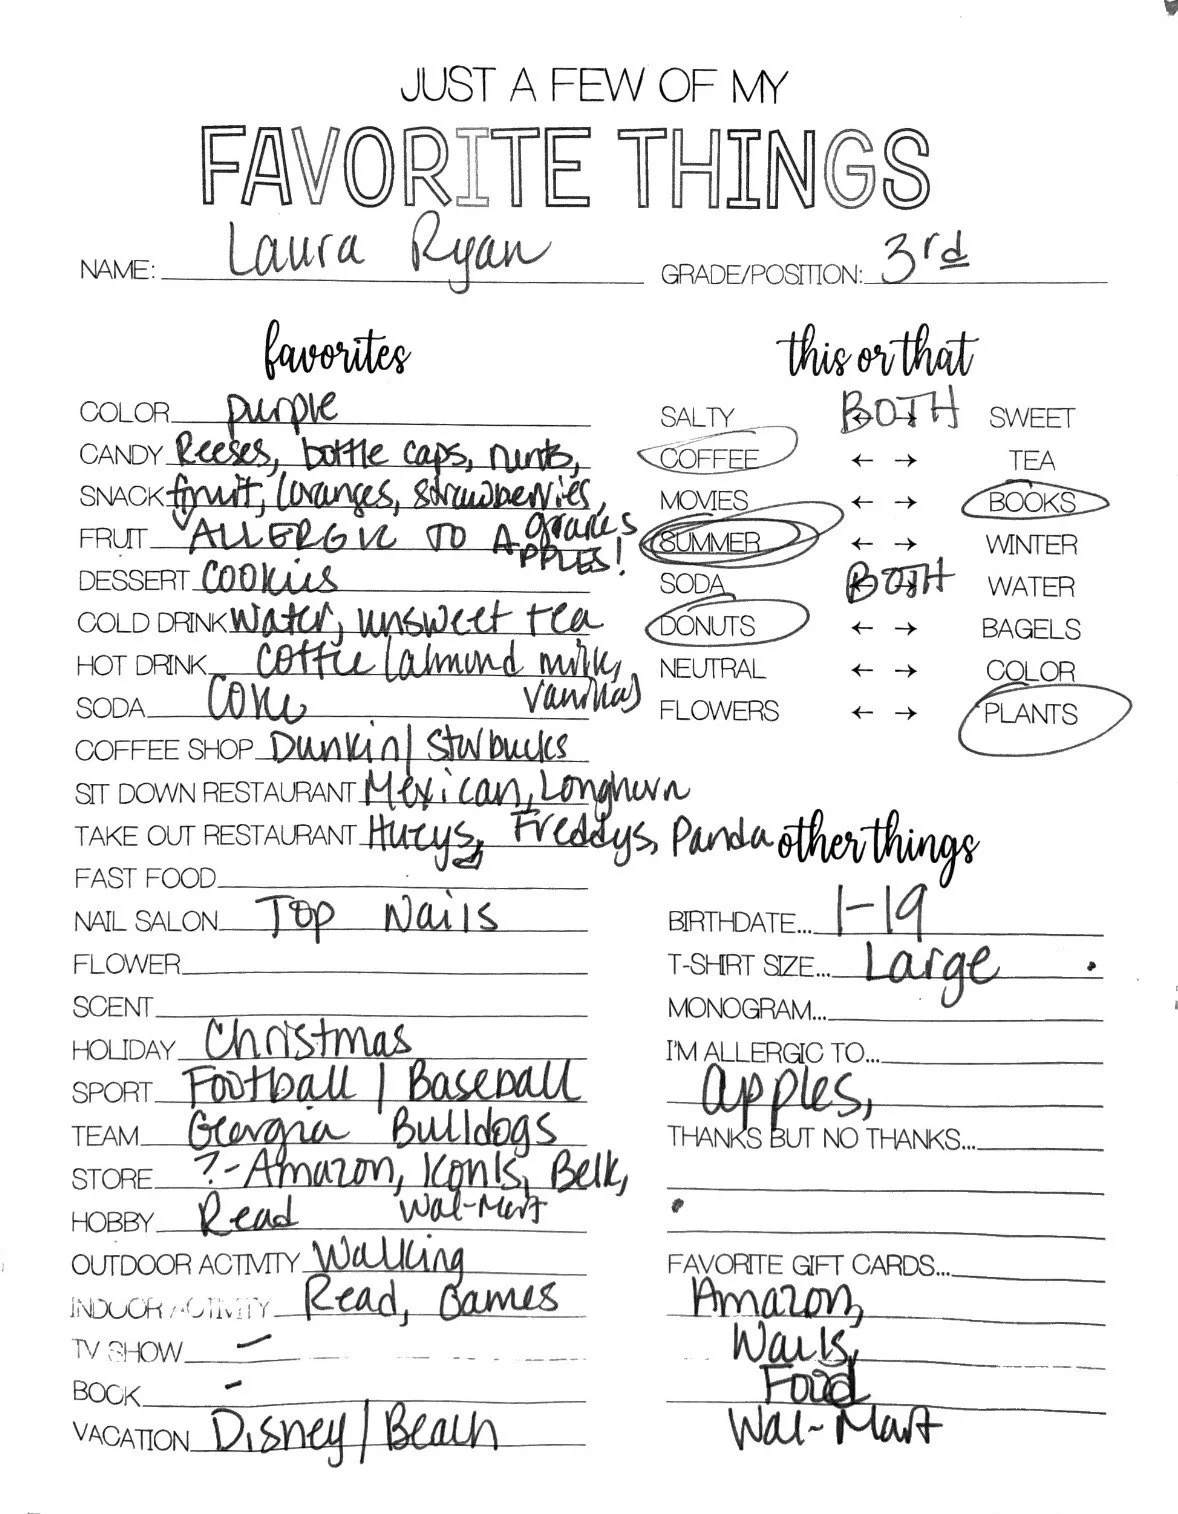 JUST A FEW OF MY
FAVORITE THINGS
NAME: Laura Ryan
GRADE/POSITION: 3rd
favorites
COLOR purple
CANDY Reeses, bottle caps, nerds,
SNACK fruit, (oranges, strawberries,
grapes
FRUIT ALLERGIC TO APPLES!
DESSERT cookies
COLD DRINK Water, unsweet tea
HOT DRINK coffee (almond milk,
vanilla)
SODA Coke
COFFEE SHOP Dunkin/ Starbucks
SIT DOWN RESTAURANT Mexican, Longhorn
TAKE OUT RESTAURANT Hueys, Freddys, Panda
FAST FOOD
NAIL SALON Top Nails
FLOWER
SCENT
HOLIDAY Christmas
SPORT Football / Baseball
TEAM Georgia Bulldogs
STORE ?-Amazon, Kohls, Belk,
Wal-Mart
HOBBY Read
OUTDOOR ACTIVITY Walking
INDOOR ACTIVITY Read, Games
TV SHOW -
BOOK -
VACATION Disney / Beach
this or that
SALTY BOTH SWEET
COFFEE ← → TEA
MOVIES ← → BOOKS
SUMMER ← → WINTER
SODA BOTH WATER
DONUTS ← → BAGELS
NEUTRAL ← → COLOR
FLOWERS ← → PLANTS
other things
BIRTHDATE... 1-19
T-SHIRT SIZE... Large
MONOGRAM...
I'M ALLERGIC TO...
apples,
THANKS BUT NO THANKS...
FAVORITE GIFT CARDS...
Amazon,
Food
Wal-Mart